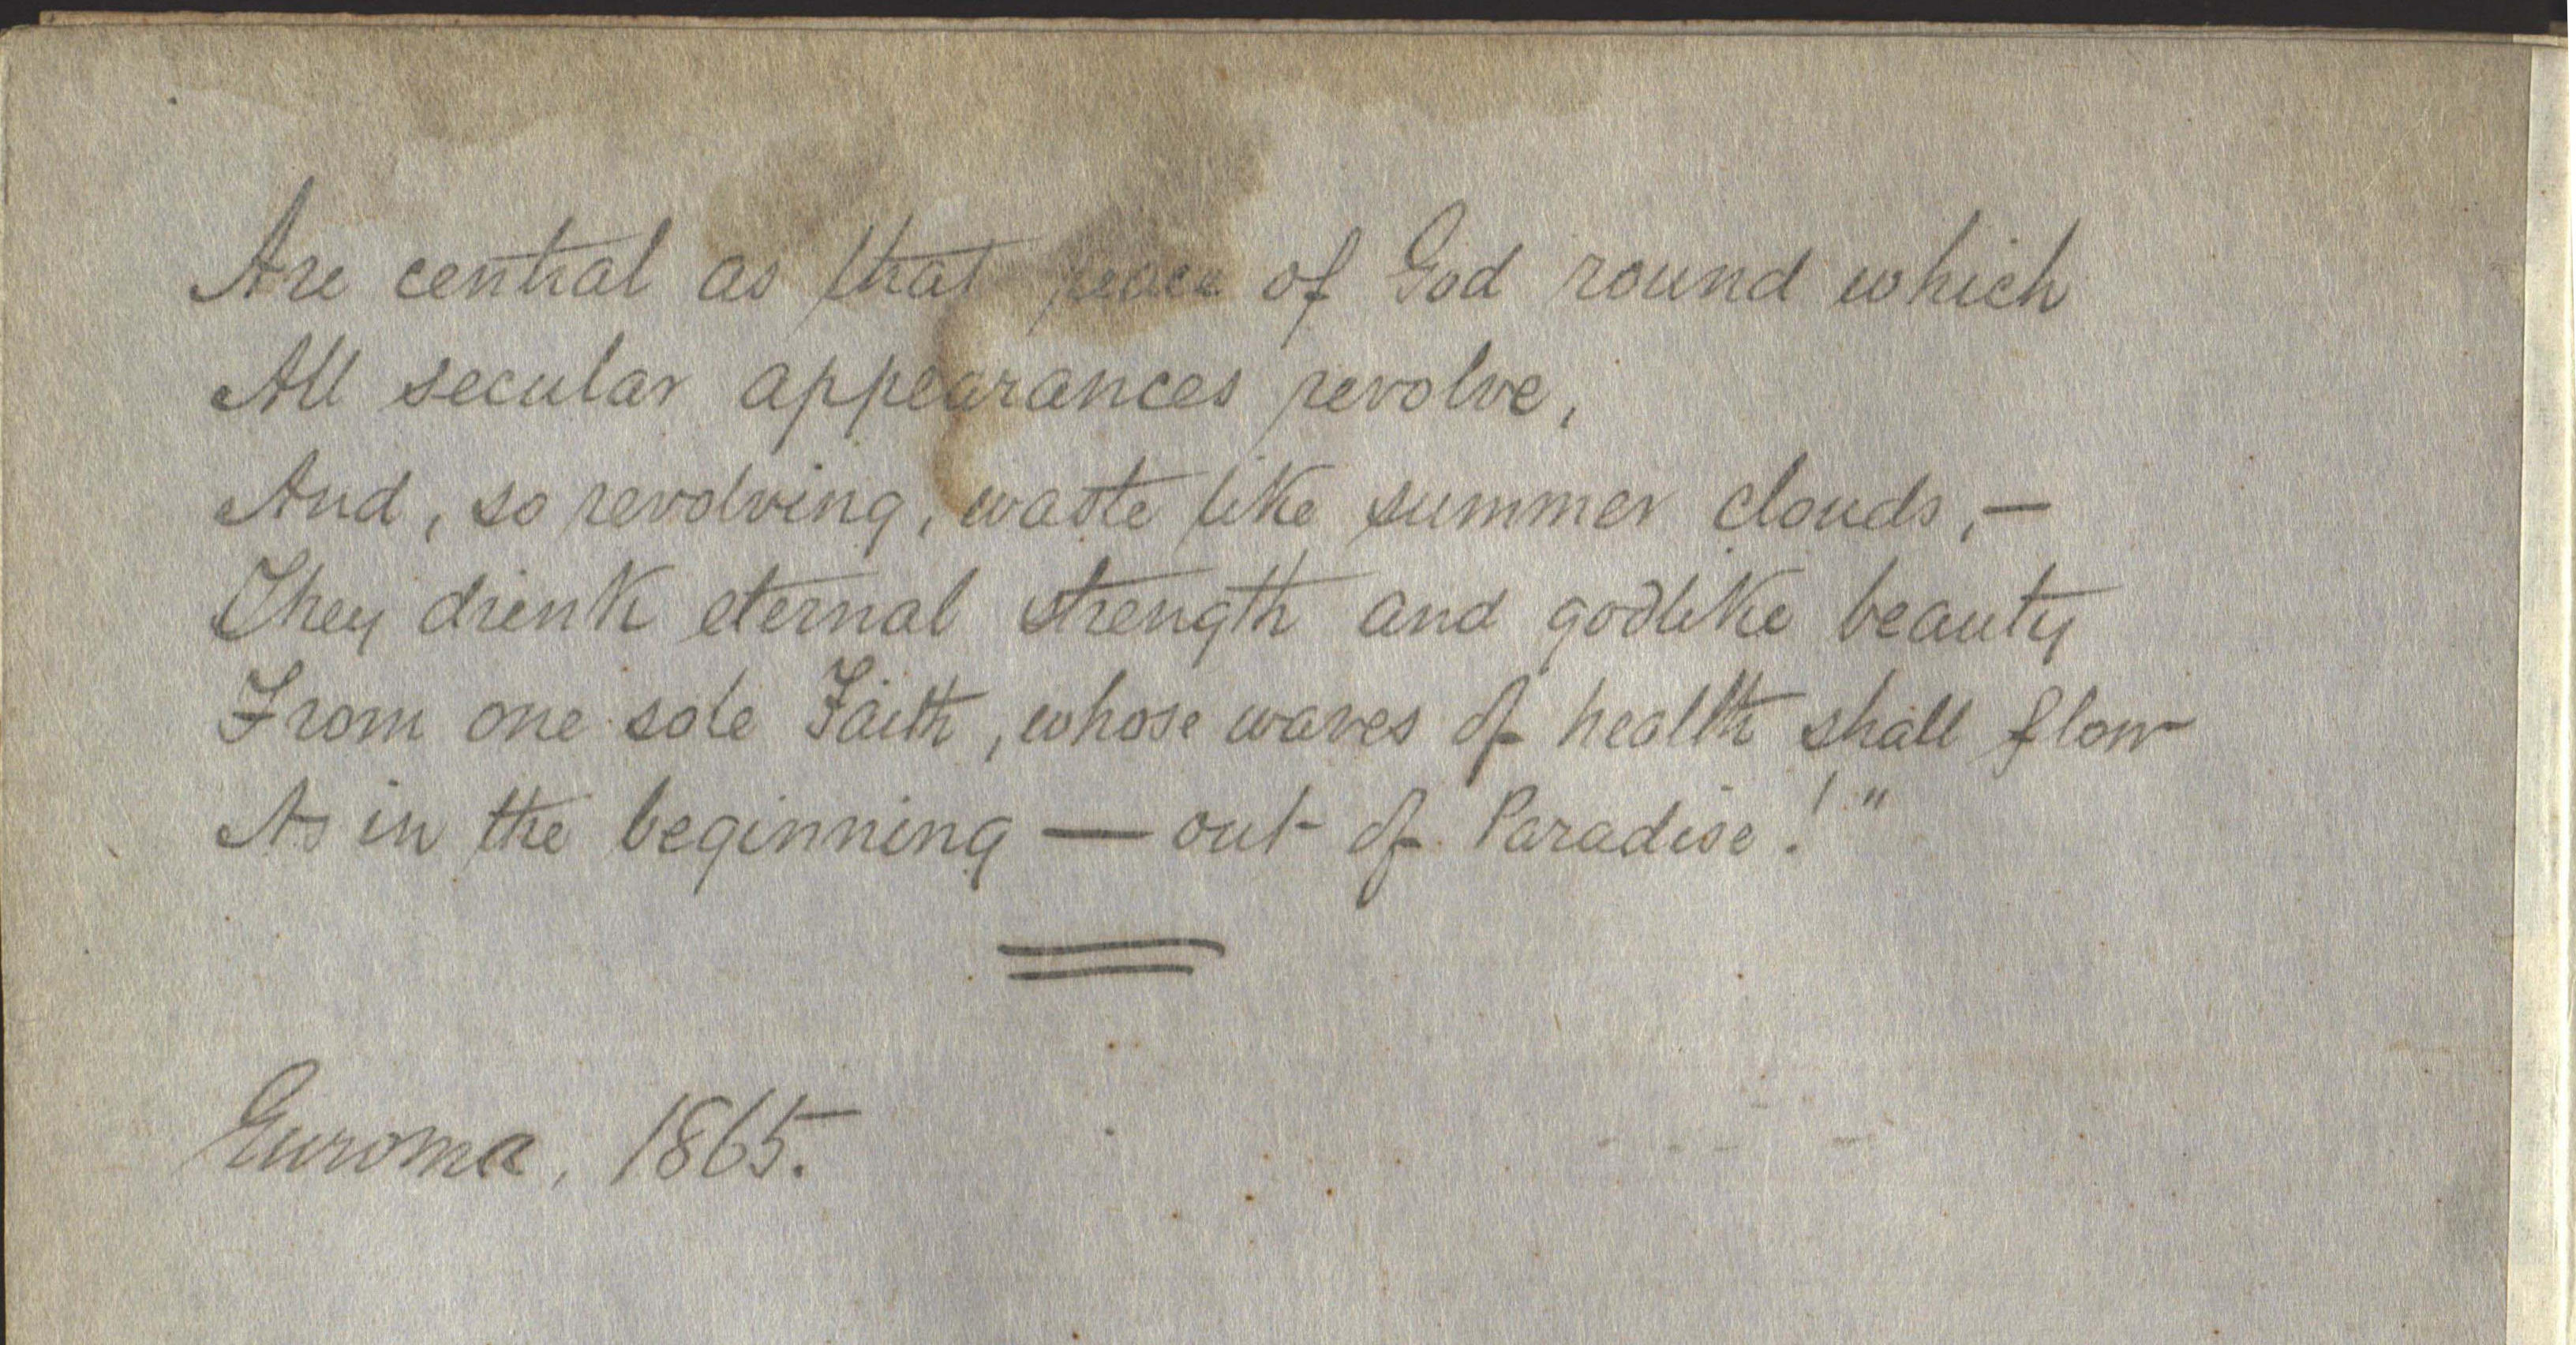 Are central as that peace of God round which
All secular appearances revolve,
And, so revolving, waste like summer clouds,—
They drink eternal strength and godlike beauty
From one sole Faith, whose waves of health shall flow
As in the beginning — out of Paradise!"
Euroma, 1865.